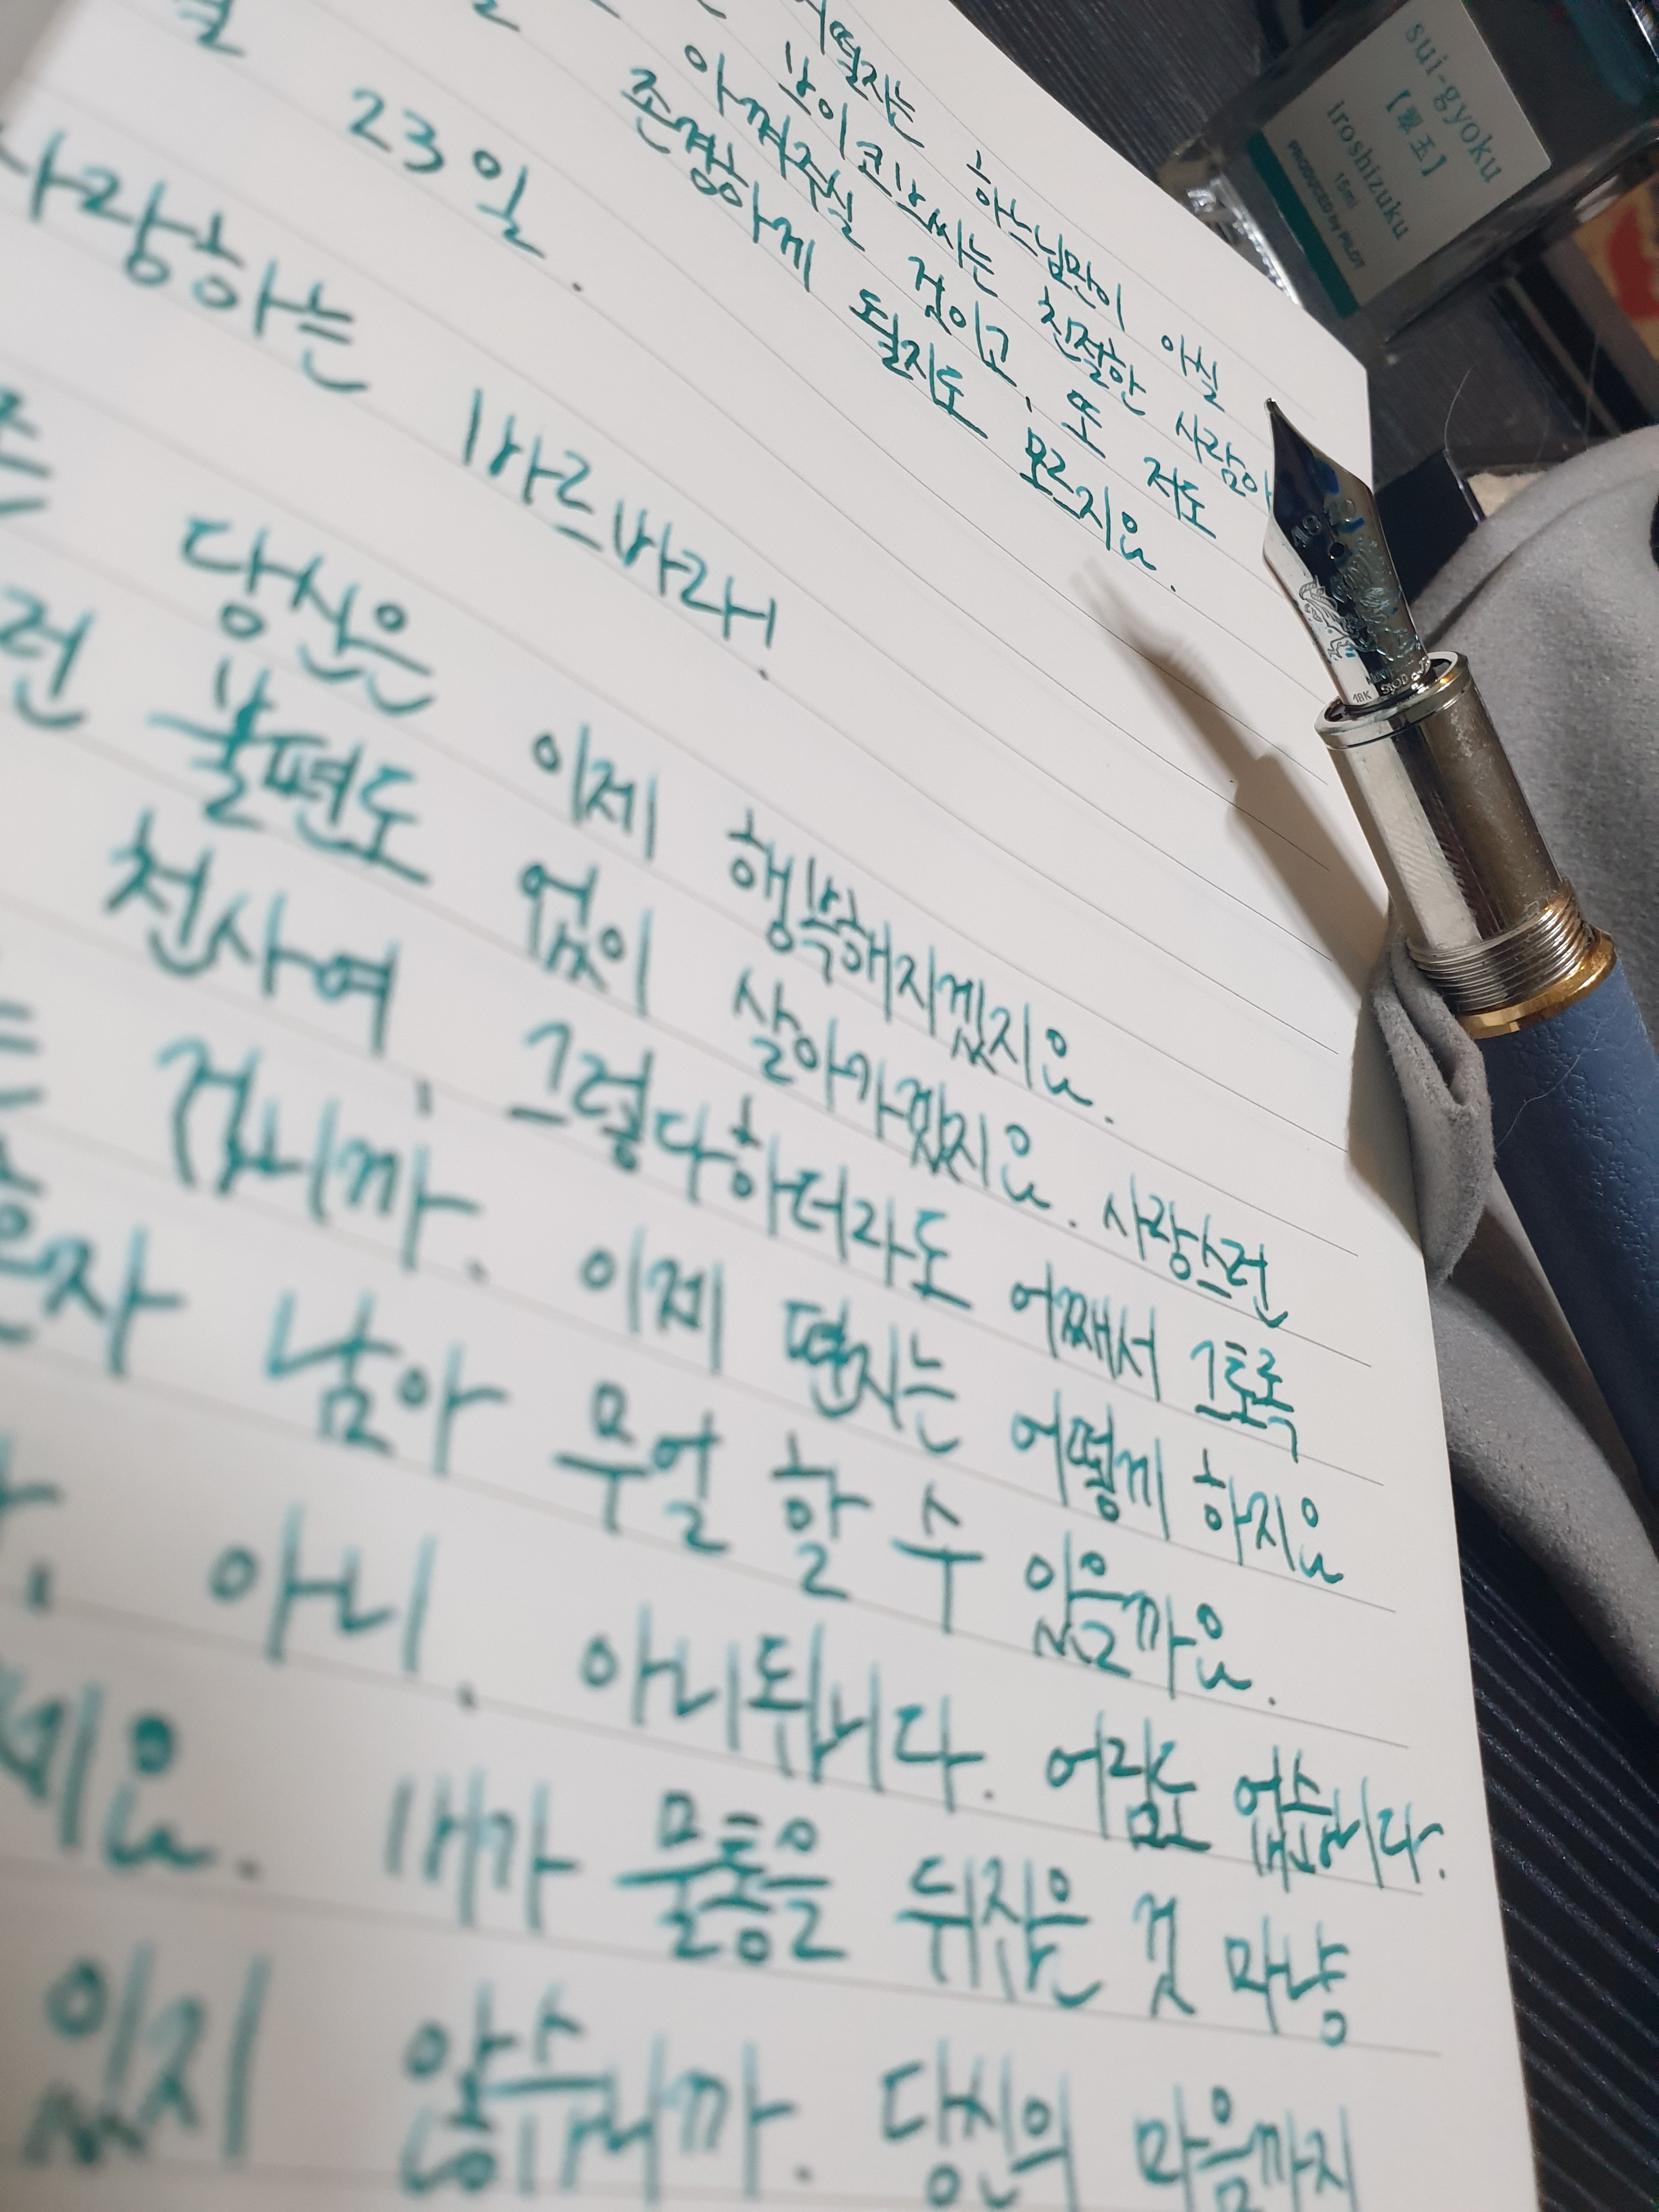 여열자는 하느님만이 아실
브이코프씨는 친절한 사람이
아껴주실 것이고, 또 저도
존경하게 될지도 모르지요.
23일.
사랑하는 바르바라!
당신은 이제 행복해지겠지요.
런 불편도 없이 살아가겠지요. 사랑스런
천사여, 그렇다하더라도 어째서 그토록
겁니까. 이제 편지는 어떻게 하지요
혼자 남아 무얼 할 수 있을까요.
아니, 아니됩니다. 어림도 없습니다.
세요. 내가 물통을 뒤집은 것 마냥
있지 않습니까. 당신의 마음까지
sui-gyoku
【翠玉】
iroshizuku
15ml
PRODUCED by PILOT
18K